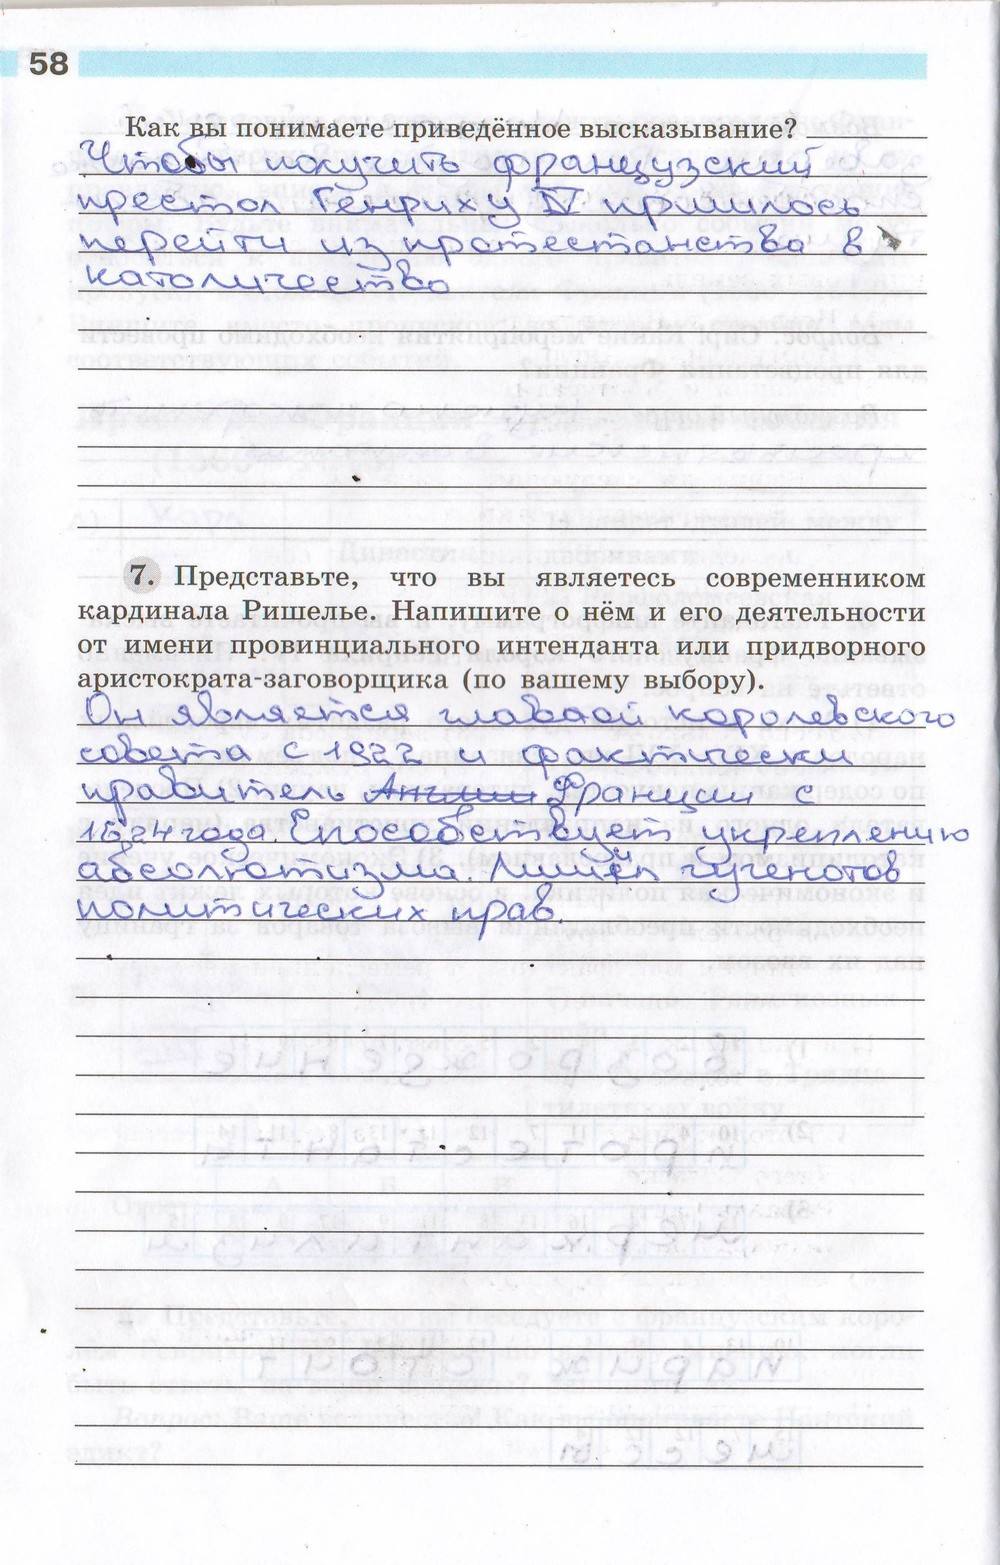 58
Как вы понимаете приведённое высказывание?
Чтобы получить французский
престол Генриху IV пришлось
перейти из протестанства в
католичество
7. Представьте, что вы являетесь современником
кардинала Ришелье. Напишите о нём и его деятельности
от имени провинциального интенданта или придворного
аристократа-заговорщика (по вашему выбору).
Он является главной королевского
совета с 1922 и фактически
правител Англии Франции с
1624 года. Способствует укреплению
абсолютизма. Лишил гугенотов
политических прав.